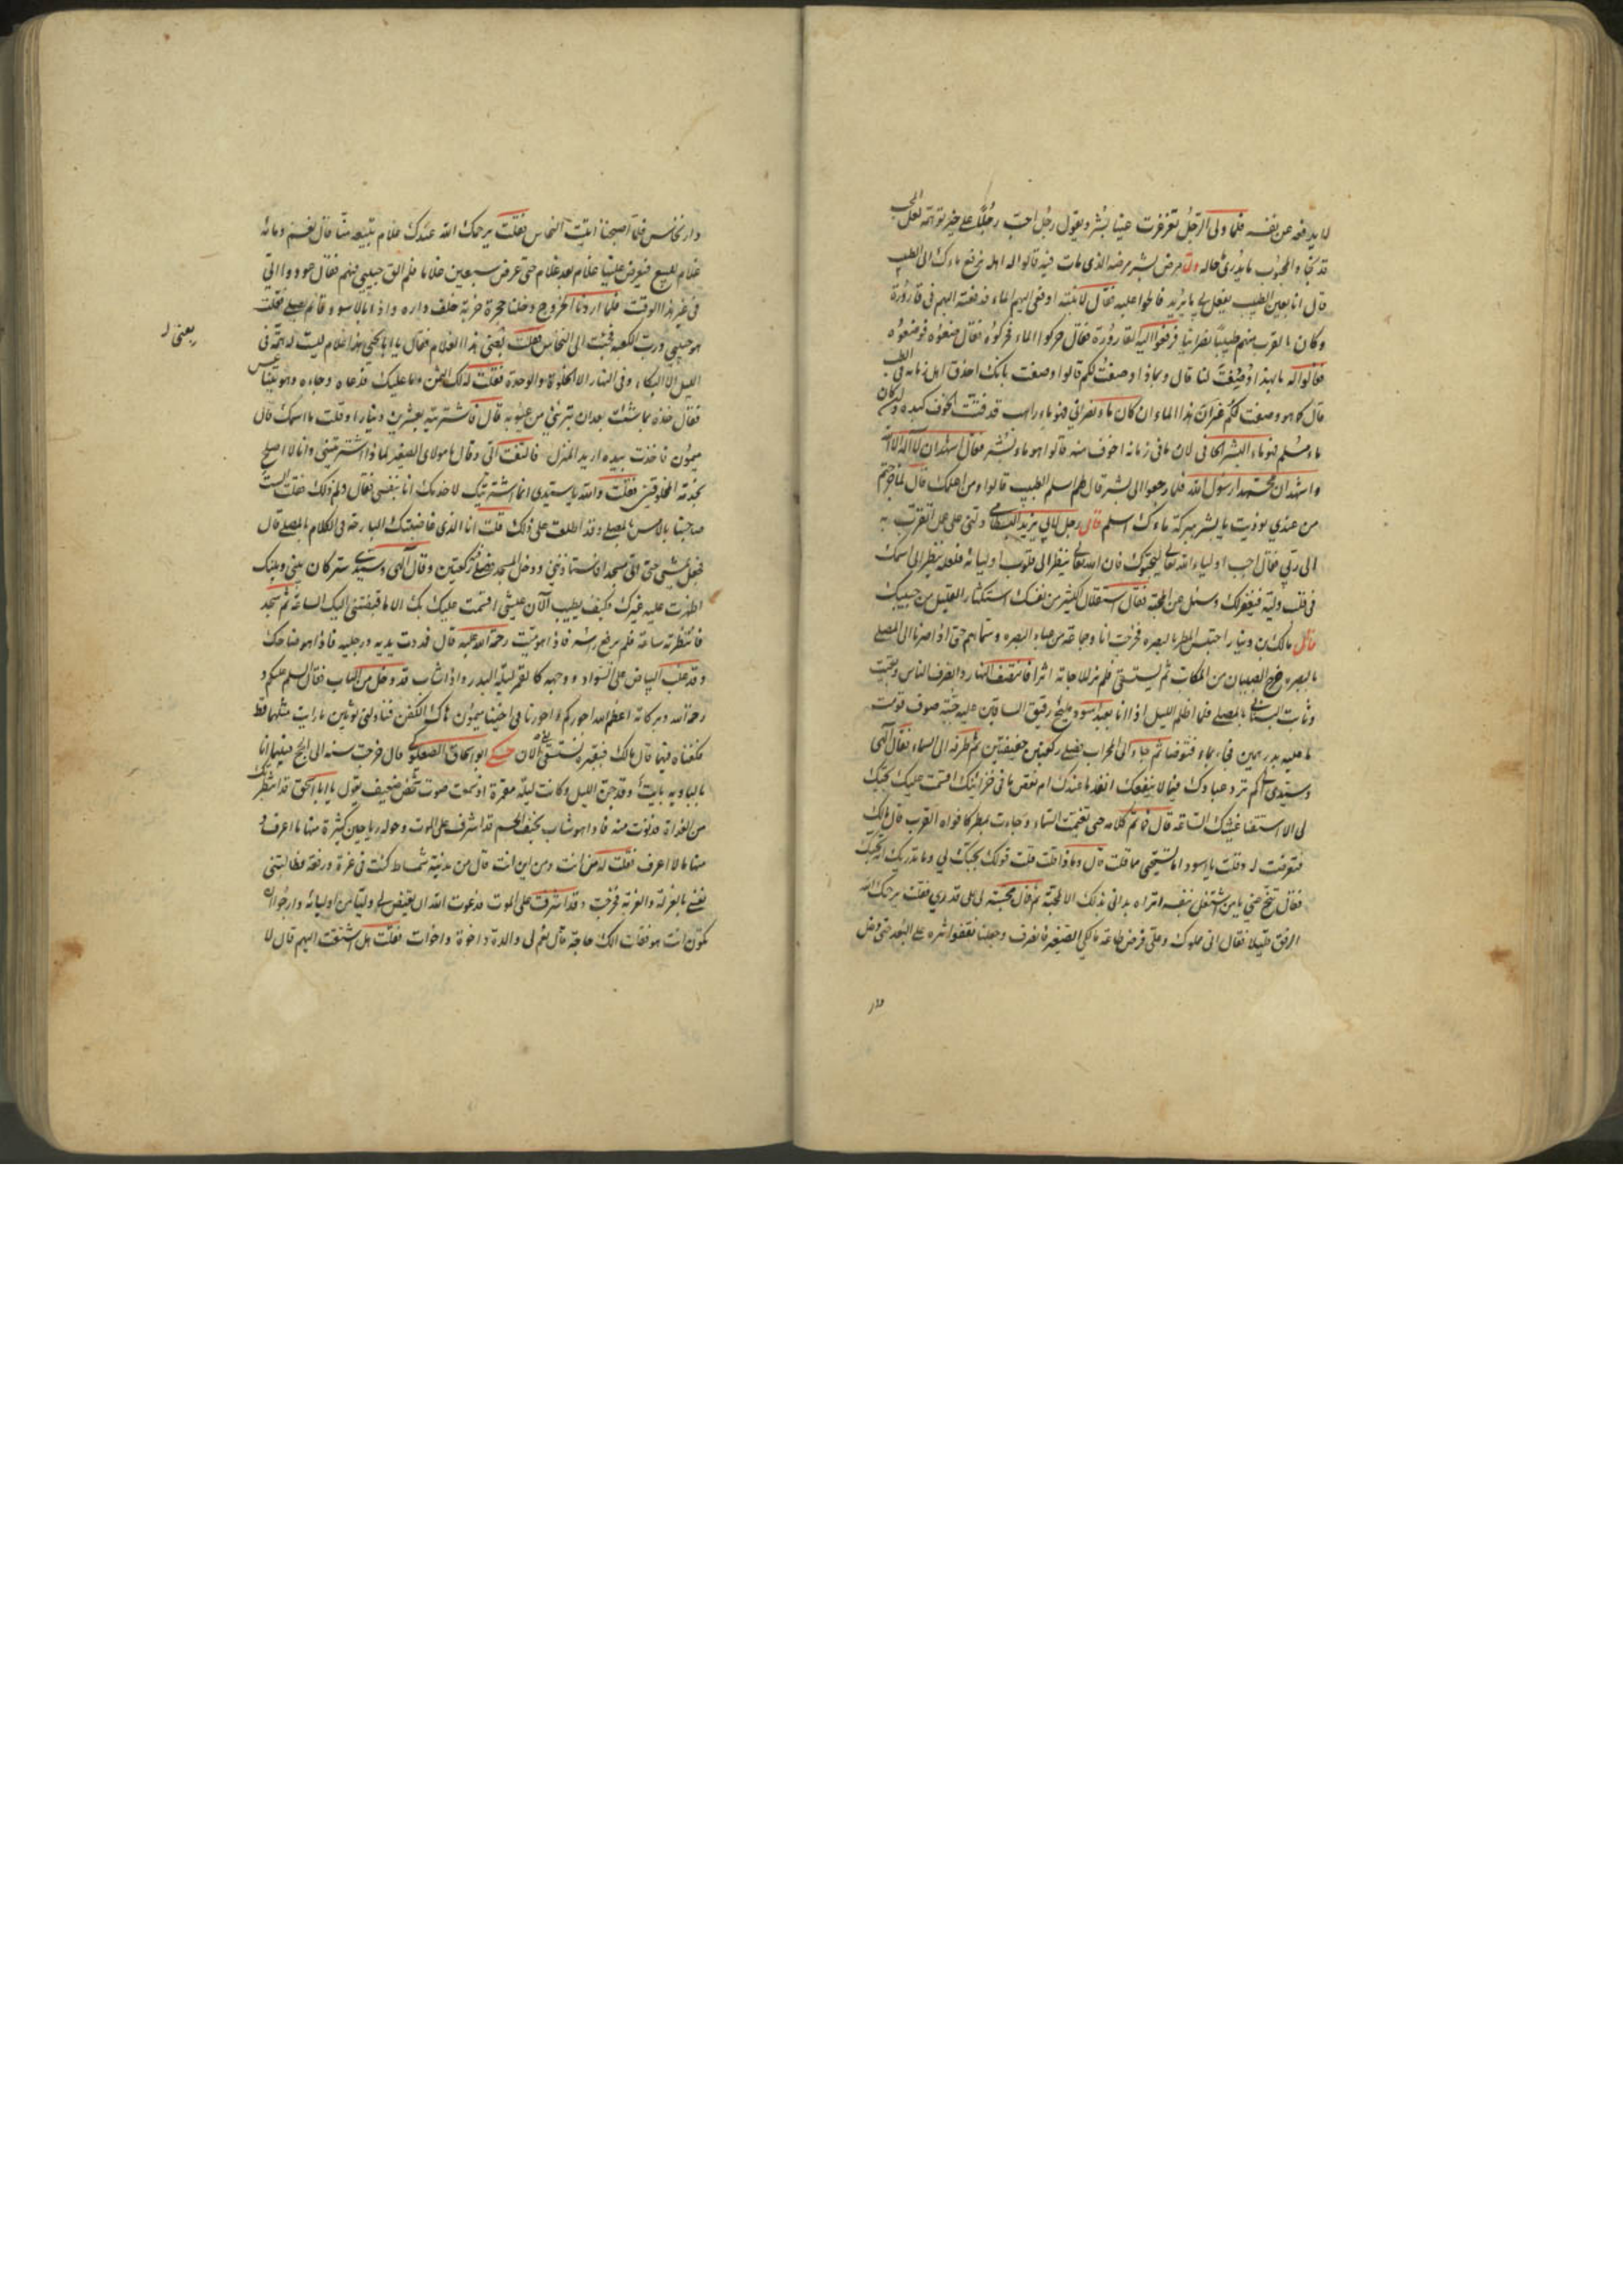 لا يدفعه عن نفسه فلما ولى الرجل تغرغرت عينا بشر ويقول رجل احب رجلا على خير توهمه لعل المحب
قد نجا والمحبوب ما يدرى ما حاله ولما مرض بشر مرضه الذى مات فيه قالوا له اهله نرفع ماءك الى الطبيب
قال انا بعين الطبيب يفعل بي ما يريد فالحوا عليه فقال لابنته ادفعى اليهم الماء فدفعته اليهم فى قارورة
وكان بالقرب منهم طبيبا نصرانيا فرفعوا اليه القارورة فقال حركوا الماء فحركوه فقال ضعوه فوضعوه
فقالوا له ما بهذا وصفت لنا قال وبماذا وصفت لكم قالوا وصفت بانك احذق اهل زمانه فى الطب
قال كما هو وصفت لكم غير ان هذا الماء ان كان ماء نصرانى فهو ماء راهب قد فتت الخوف كبده وان كان
ماء مسلم فهو ماء البشر الحافى لان ما فى زمانه اخوف منه قالوا هو ماء بشر فقال اشهد ان لا اله الا الله
واشهد ان محمدا رسول الله فلما رجعوا الى بشر قال لهم اسلم الطبيب قالوا ومن اعلمك قال لما خرجتم
من عندى نوديت يا بشر ببركة ماءك اسلم قال رجل لابى يزيد البسطامى دلنى على عمل اتقرب به
الى ربى فقال احب اولياء الله تعالى ليحبوك فان الله تعالى ينظر الى قلوب اوليائه فلعله ينظر الى اسمك
فى قلب وليه فيغفر لك وسئل عن المحبة فقال استقلال الكثير من نفسك استكثار القليل من حبيبك
قال مالك بن دينار احتبس المطر بالبصرة فخرجت انا وجماعة من عباد البصرة وسماهم حتى اذا صرنا الى المصلى
بالبصرة خرج الصبيان من المكاتب ثم ليستسقى فلم نر للاجابة اثرا فانتصف النهار وانصرف الناس وبقيت
وثابت البنانى بالمصلى فلما اظلم الليل اذا انا بعبد اسود مليح رقيق الساقين عليه جبة صوف قومت
ما عليه بدرهمين فجاء بماء فتوضا ثم جاء الى المحراب فصلى ركعتين خفيفتين ثم طرفه الى السماء فقال الهى
وسيدى كم ترد عبادك فيما لا ينفعك انفد ما عندك ام نقص ما فى خزائنك اقسمت عليك بحبك
لى الا اسقتنا غيثك الساعة قال فما تم كلامه حتى تغيمت السماء وجاءت بمطر كافواه القرب قال مالك
فتعرضت له وقلت يا اسود اما تستحيى مما قلت قال وماذا قلت قلت قولك بحبك لى وما يدريك انه يحبك
فقال تنح عنى يا من اشتغل بنفسه اتراه بدانى بذلك الا لمحبته ثم قال محبته لى على قدرى فقلت يرحمك الله
ارفق قليلا فقال انى مملوك وعلى فرض طاعة مالكى الصغير فانصرف وجعلنا نقفوا اثره على البعد حتى دخل
دار
دار نخاس فلما اصبحنا اتيت النخاس فقلت يرحمك الله عندك غلام تبيعه منا قال نعم ومائة
غلام للبيع فيعرض علينا غلام بعد غلام حتى عرض سبعين غلاما فلم الق حبيبى فيهم فقال عودوا الى
فى غير هذا الوقت فلما اردنا الخروج دخلنا حجرة خربة خلف داره واذا بالاسود قائم يصلى فقلت
هو حبيبى ورب الكعبة فجئت الى النخاس فقلت بعنى هذا الغلام فقال يا ابا يحيى هذا غلام ليست له همة فى
الليل الا البكاء وفى النهار الا الخلوة والوحدة فقلت لذلك الثمن وما عليك فدعاه وجاءه وهو يتناعس
فقال خذه بما شئت بعد ان تبرئنى من عيوبه قال فاشتريته بعشرين دينارا وقلت ما اسمك قال
ميمون فاخذت بيده اريد المنزل فالتفت الى وقال يا مولاى الصغير لماذا اشتريتنى وانا لا اصلح
بخدمة المخلوقين فقلت والله يا سيدى انما اشتريتك لاخدمك انا بنفسى فقال ولم ذلك فقلت الست
صاحبنا بالامس بالمصلى وقد اطلعت على ذلك قلت انا الذى خاطبتك البارحة فى الكلام بالمصلى قال
فجعل يمشى حتى اتى مسجدا فاستاذننى ودخل المسجد فصلى ركعتين وقال الهى وسيدى سر كان بينى وبينك
اظهرت عليه غيرك فكيف يطيب الآن عيشى اقسمت عليك بك الا ما قبضتنى اليك الساعة ثم سجد
فانتظرته ساعة فلم يرفع رأسه فاذا هو ميت رحمة الله عليه قال فمددت يديه ورجليه فاذا هو ضاحك
وقد غلب البياض على السواد ووجهه كالقمر ليلة البدر واذا شاب قد دخل من الباب فقال السلم عليكم و
رحمة الله وبركاته اعظم الله اجوركم واجورنا فى اخينا ميمون هاك الكفن فناولنى ثوبين ما رايت مثلهما قط
فكفناه فيهما قال مالك فبقبره نستسقى الى الآن حكى ابو اسحاق الصعلوكى قال خرجت سنة الى الحج فبينما انا
بالبادية تايها وقد جن الليل وكانت ليلة مقمرة اذ سمعت صوت شخص ضعيف يقول يا ابا اسحق قد انتظرتك
من الغداة فدنوت منه فاذا هو شاب نحيف الجسم قد اشرف على الموت وحوله رياحين كثيرة منها ما اعرف و
منها ما لا اعرف فقلت له من انت ومن اين انت قال من مدينة شمشاط كنت فى عزة ورفعة فطالبتنى
نفسى بالعزلة والغربة فخرجت وقد اشرفت على الموت فدعوت الله ان يقيض لى وليا من اوليائه وارجو ان
تكون انت هو فقلت الك حاجة قال نعم لى والدة واخوة واخوات فقلت هل اشتقت اليهم قال لا